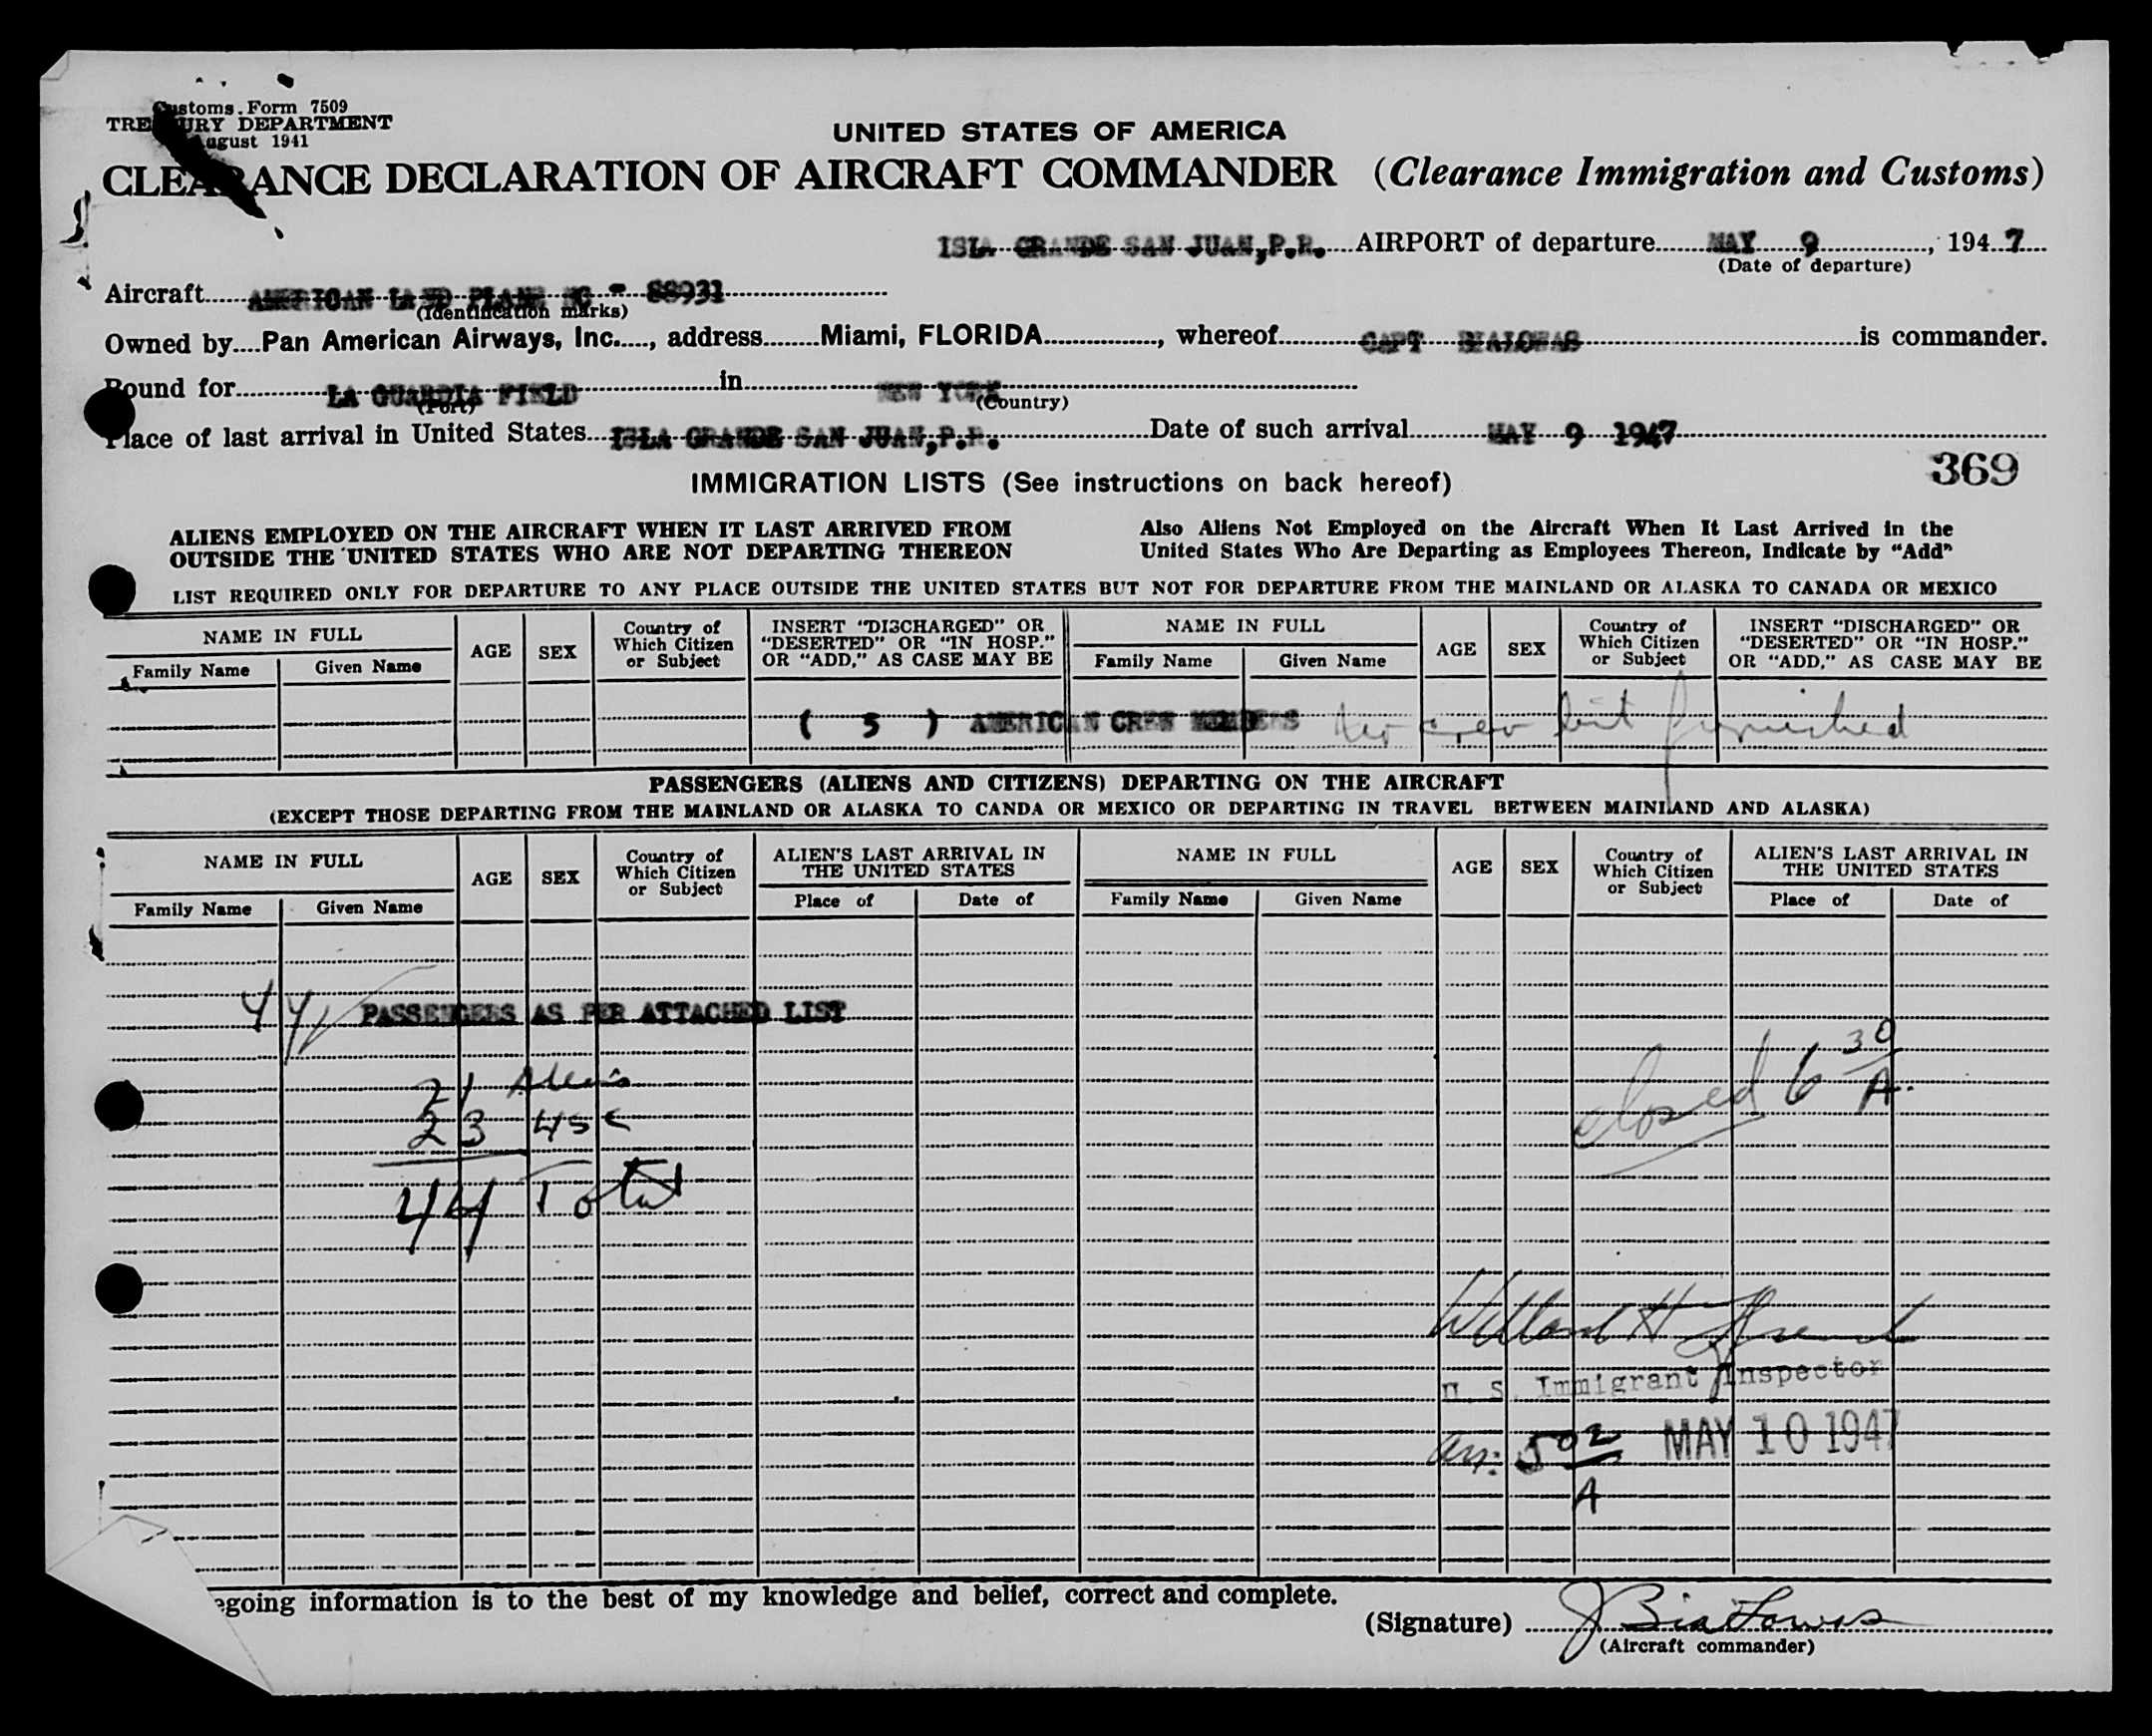 Customs Form 7509
TREASURY DEPARTMENT
August 1941
UNITED STATES OF AMERICA
CLEARANCE DECLARATION OF AIRCRAFT COMMANDER (Clearance Immigration and Customs)
ISLA GRANDE SAN JUAN, P.R. AIRPORT of departure MAY 9, 1947
(Date of departure)
Aircraft AMERICAN LAND PLANE NC - 88931
(Identification marks)
Owned by Pan American Airways, Inc., address Miami, FLORIDA, whereof CAPT BIALOWAS is commander.
Bound for LA GUARDIA FIELD in NEW YORK
(Port) (Country)
Place of last arrival in United States ISLA GRANDE SAN JUAN, P.R. Date of such arrival MAY 9 1947
369
IMMIGRATION LISTS (See instructions on back hereof)
ALIENS EMPLOYED ON THE AIRCRAFT WHEN IT LAST ARRIVED FROM
OUTSIDE THE UNITED STATES WHO ARE NOT DEPARTING THEREON
Also Aliens Not Employed on the Aircraft When It Last Arrived in the
United States Who Are Departing as Employees Thereon, Indicate by "Add"
LIST REQUIRED ONLY FOR DEPARTURE TO ANY PLACE OUTSIDE THE UNITED STATES BUT NOT FOR DEPARTURE FROM THE MAINLAND OR ALASKA TO CANADA OR MEXICO
NAME IN FULL
Family Name Given Name
AGE
SEX
Country of
Which Citizen
or Subject
INSERT "DISCHARGED" OR
"DESERTED" OR "IN HOSP."
OR "ADD," AS CASE MAY BE
NAME IN FULL
Family Name Given Name
AGE
SEX
Country of
Which Citizen
or Subject
INSERT "DISCHARGED" OR
"DESERTED" OR "IN HOSP."
OR "ADD," AS CASE MAY BE
( 5 ) AMERICAN CREW MEMBERS No crew list furnished
PASSENGERS (ALIENS AND CITIZENS) DEPARTING ON THE AIRCRAFT
(EXCEPT THOSE DEPARTING FROM THE MAINLAND OR ALASKA TO CANDA OR MEXICO OR DEPARTING IN TRAVEL BETWEEN MAINLAND AND ALASKA)
NAME IN FULL
Family Name Given Name
AGE
SEX
Country of
Which Citizen
or Subject
ALIEN'S LAST ARRIVAL IN
THE UNITED STATES
Place of Date of
NAME IN FULL
Family Name Given Name
AGE
SEX
Country of
Which Citizen
or Subject
ALIEN'S LAST ARRIVAL IN
THE UNITED STATES
Place of Date of
44 PASSENGERS AS PER ATTACHED LIST
21 Aliens
closed 6 30 A.
23 USC
44 Total
Willard H French
U. S. Immigrant Inspector
arr: 5 02 A MAY 10 1947
egoing information is to the best of my knowledge and belief, correct and complete.
(Signature) J Bialowas
(Aircraft commander)